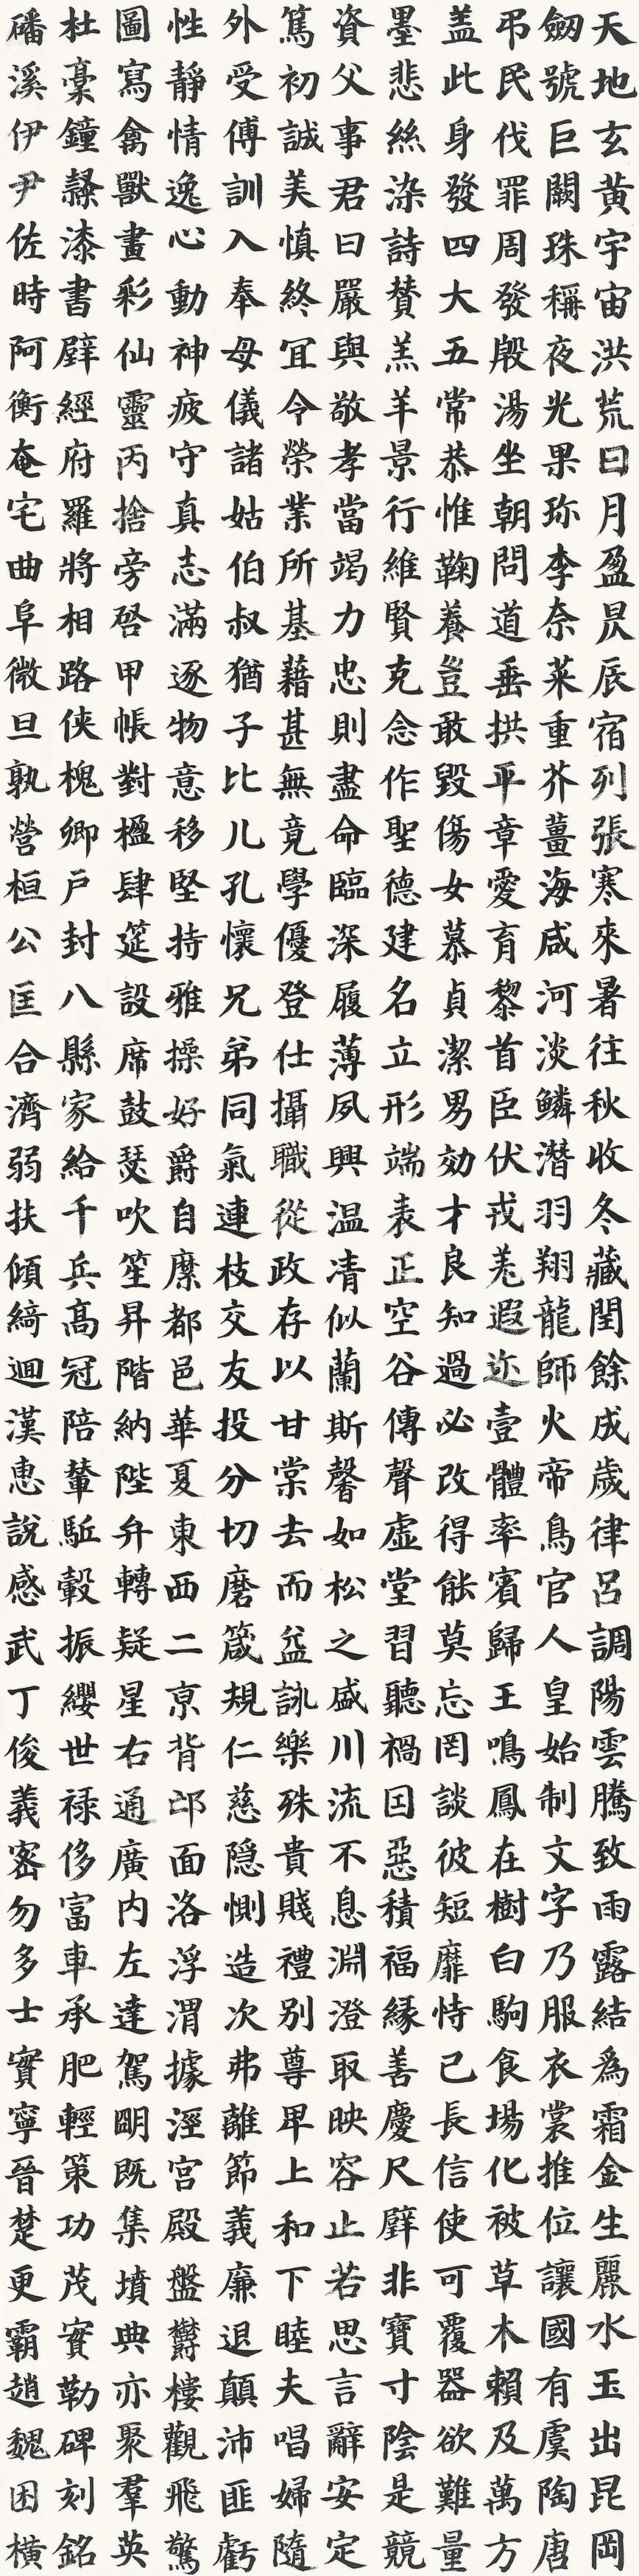 天地玄黃宇宙洪荒日月盈昃辰宿列張寒來暑往秋收冬藏閏餘成歲律呂調陽雲騰致雨露結為霜金生麗水玉出昆岡
劒號巨闕珠稱夜光果珎李柰菜重芥薑海咸河淡鱗潛羽翔龍師火帝鳥官人皇始制文字乃服衣裳推位讓國有虞陶唐
弔民伐罪周發殷湯坐朝問道垂拱平章愛育黎首臣伏戎羌遐迩壹體率賓歸王鳴鳳在樹白駒食場化被草木賴及萬方
盖此身發四大五常恭惟鞠養豈敢毀傷女慕貞潔男効才良知過必改得能莫忘罔談彼短靡恃己長信使可覆器欲難量
墨悲絲染詩賛羔羊景行維賢克念作聖德建名立形端表正空谷傳聲虛堂習聽禍因惡積福緣善慶尺璧非寶寸陰是競
資父事君曰嚴與敬孝當竭力忠則盡命臨深履薄夙興温凊似蘭斯馨如松之盛川流不息淵澄取映容止若思言辭安定
篤初誠美慎終宜令榮業所基藉甚無竟學優登仕攝職從政存以甘棠去而益詠樂殊貴賤禮別尊卑上和下睦夫唱婦隨
外受傅訓入奉母儀諸姑伯叔猶子比兒孔懷兄弟同氣連枝交友投分切磨箴規仁慈隱惻造次弗離節義廉退顛沛匪虧
性靜情逸心動神疲守真志滿逐物意移堅持雅操好爵自縻都邑華夏東西二京背邙面洛浮渭據涇宮殿盤鬱樓觀飛驚
圖寫禽獸畫彩仙靈丙捨旁啓甲帳對楹肆筵設席鼓瑟吹笙昇階納陛弁轉疑星右通廣内左達駕明既集墳典亦聚羣英
杜稾鐘隸漆書壁經府羅將相路俠槐卿戶封八縣家給千兵高冠陪輦駈轂振纓世祿侈富車承肥輕策功茂實勒碑刻銘
磻溪伊尹佐時阿衡奄宅曲阜微旦孰營桓公匡合濟弱扶傾綺迴漢惠說感武丁俊義密勿多士實寧晉楚更霸趙魏困橫